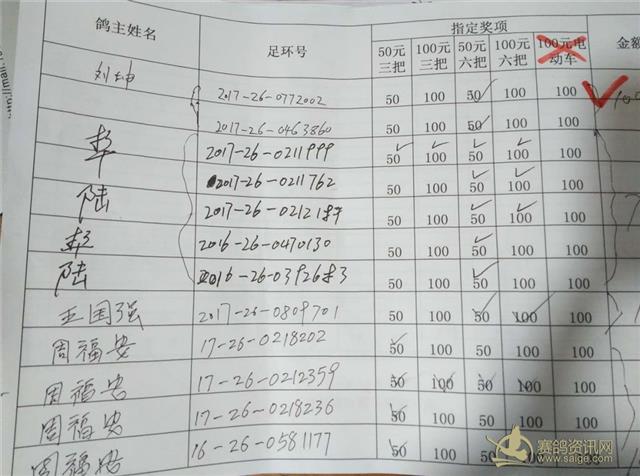 鸽主姓名 足环号 指定奖项 金额
50元三把 100元三把 50元六把 100元六把 100元电动车
刘坤 2017-26-0772002 50 100 50 100 100
2017-26-0463860 50 100 50 100 100
2017-26-0211999 50 100 50 100 100
2017-26-0211762 50 100 50 100 100
陆 2017-26-02121 50 100 50 100 100
2016-26-0470130 50 100 50 100 100
陆 2016-26-0392683 50 100 50 100 100
王国强 2017-26-0809701 50 100 50 100 100
周福安 17-26-0218202 50 100 50 100 100
周福安 17-26-0212359 50 100 50 100 100
周福安 17-26-0218236 50 100 50 100 100
周福安 16-26-0581177 50 100 50 100 100
赛鸽资讯网
www.saige.com